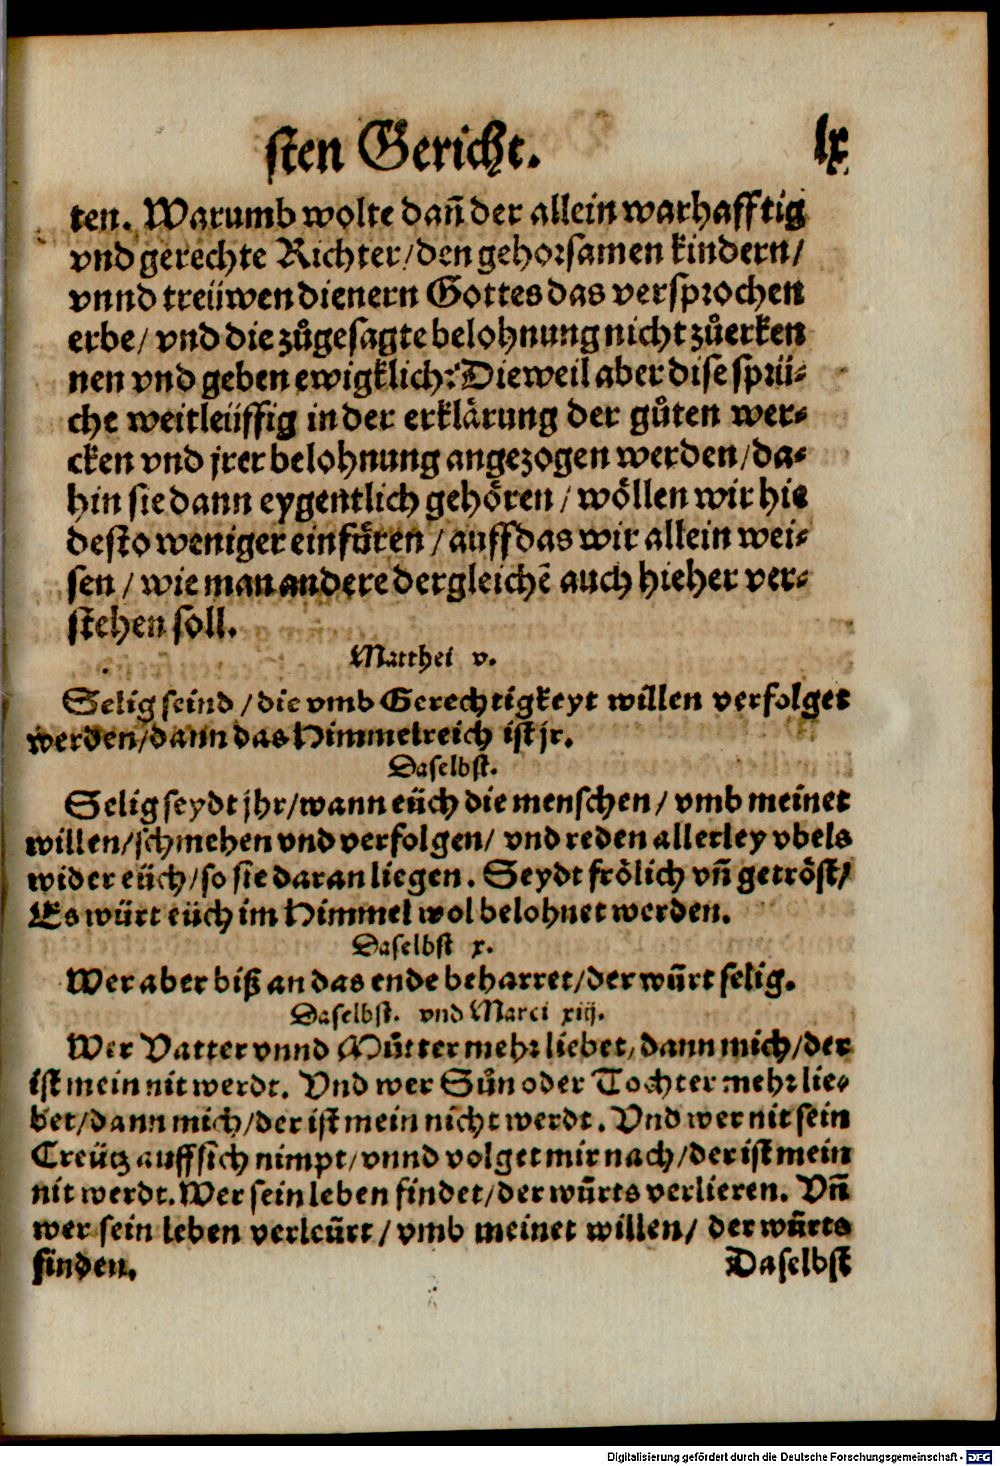 sten Gericht. lx
ten. Warumb wolte dañ der allein warhafftig
vnd gerechte Richter/den gehorsamen kindern/
vnnd treüwen dienern Gottes das versprochen
erbe/ vnd die zůgesagte belohnung nicht zůerken
nen vnd geben ewigklich? Dieweil aber dise sprü-
che weitleüffig in der erklärung der gůten wer-
cken vnd jrer belohnung angezogen werden/da-
hin sie dann eygentlich gehören / wöllen wir hie
desto weniger einfüren / auff das wir allein wei-
sen / wie man andere dergleichē auch hieher ver-
stehen soll.
Matthei v.
Selig seind / die vmb Gerechtigkeyt willen verfolget
werden/dann das Himmelreich ist jr.
Daselbst.
Selig seydt jhr/wann eüch die menschen/ vmb meinet
willen/schmehen vnd verfolgen/ vnd reden allerley vbels
wider eüch/so sie daran liegen. Seydt frölich vñ getröst/
Es würt eüch im Himmel wol belohnet werden.
Daselbst x.
Wer aber biß an das ende beharret/der würt selig.
Daselbst. vnd Marci xiij.
Wer Vatter vnnd Můtter mehr liebet/dann mich/der
ist mein nit werdt. Vnd wer Sůn oder Tochter mehr lie-
bet/dann mich/der ist mein nicht werdt. Vnd wer nit sein
Creütz auff sich nimpt/vnnd volget mir nach/der ist mein
nit werdt. Wer sein leben findet/der würts verlieren. Vñ
wer sein leben verleürt/ vmb meinet willen/ der würts
finden. Daselbst
Digitalisierung gefördert durch die Deutsche Forschungsgemeinschaft - DFG